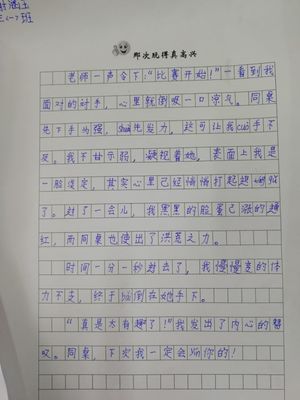 三(一)班
那次玩得真高兴
老师一声令下："比赛开始！"一看到我
面对的对手，心里就倒吸一口凉气。同桌
先下手为强，shuài先发力，这可让我cuò手不
及。我不甘示弱，硬抵着她，表面上我是
一脸淡定，其实心里已经悄悄打起退
了。过了一会儿，我黑黑的脸蛋已涨的通
红，而同桌也使出了洪荒之力。
时间一分一秒过去了，我慢慢变的体
力不支，终于倒在她手下。
"真是太有趣了！"我发出了内心的赞
叹。同桌，下次我一定会你的！